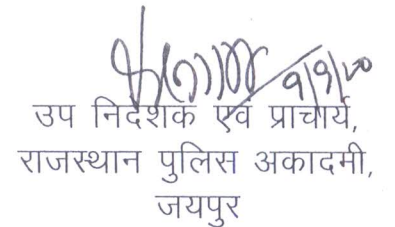 9/9/20
उप निदेशक एवं प्राचार्य,
राजस्थान पुलिस अकादमी,
जयपुर